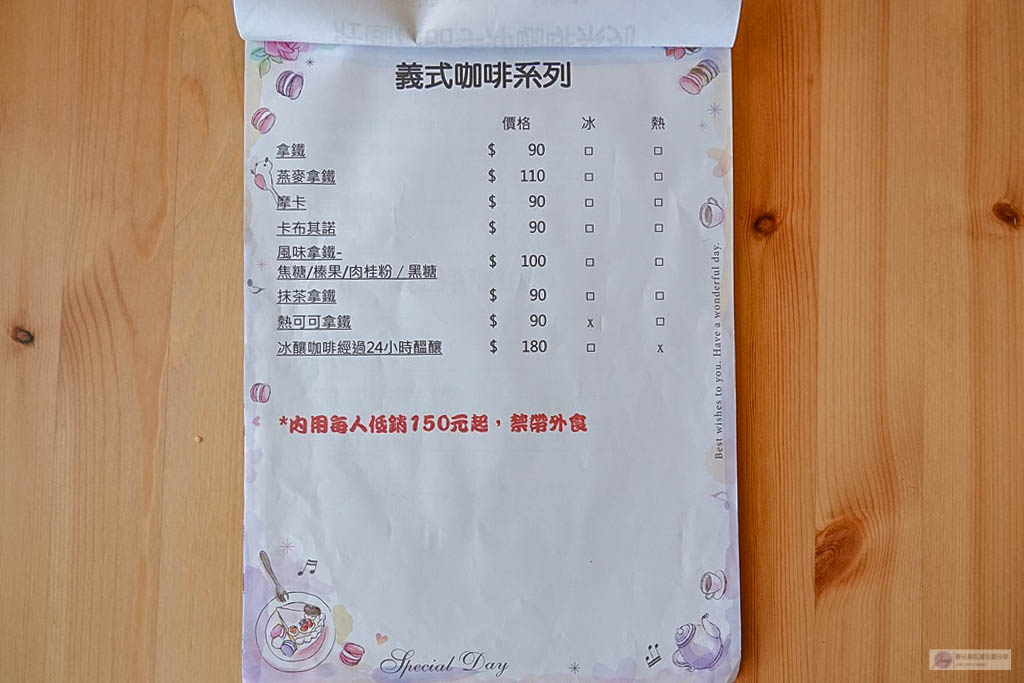 義式咖啡系列
價格 冰 熱
拿鐵 $ 90 □ □
燕麥拿鐵 $ 110 □ □
摩卡 $ 90 □ □
卡布其諾 $ 90 □ □
風味拿鐵-
焦糖/榛果/肉桂粉/黑糖 $ 100 □ □
抹茶拿鐵 $ 90 □ □
熱可可拿鐵 $ 90 x □
冰釀咖啡經過24小時醞釀 $ 180 □ x
*內用每人低銷150元起，禁帶外食
Best wishes to you. Have a wonderful day.
Special Day